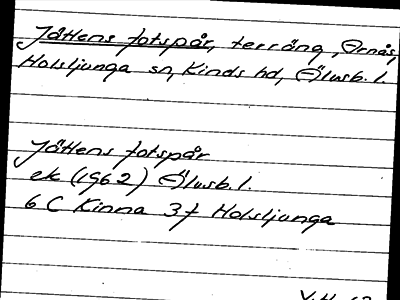 Jättens fotspår, terräng, Ornås,
Holsljunga sn, Kinds hd, Älvsb. l.
Jättens fotspår
ek (1962) Älvsb. l.
6 C Kinna 3 f Holsljunga